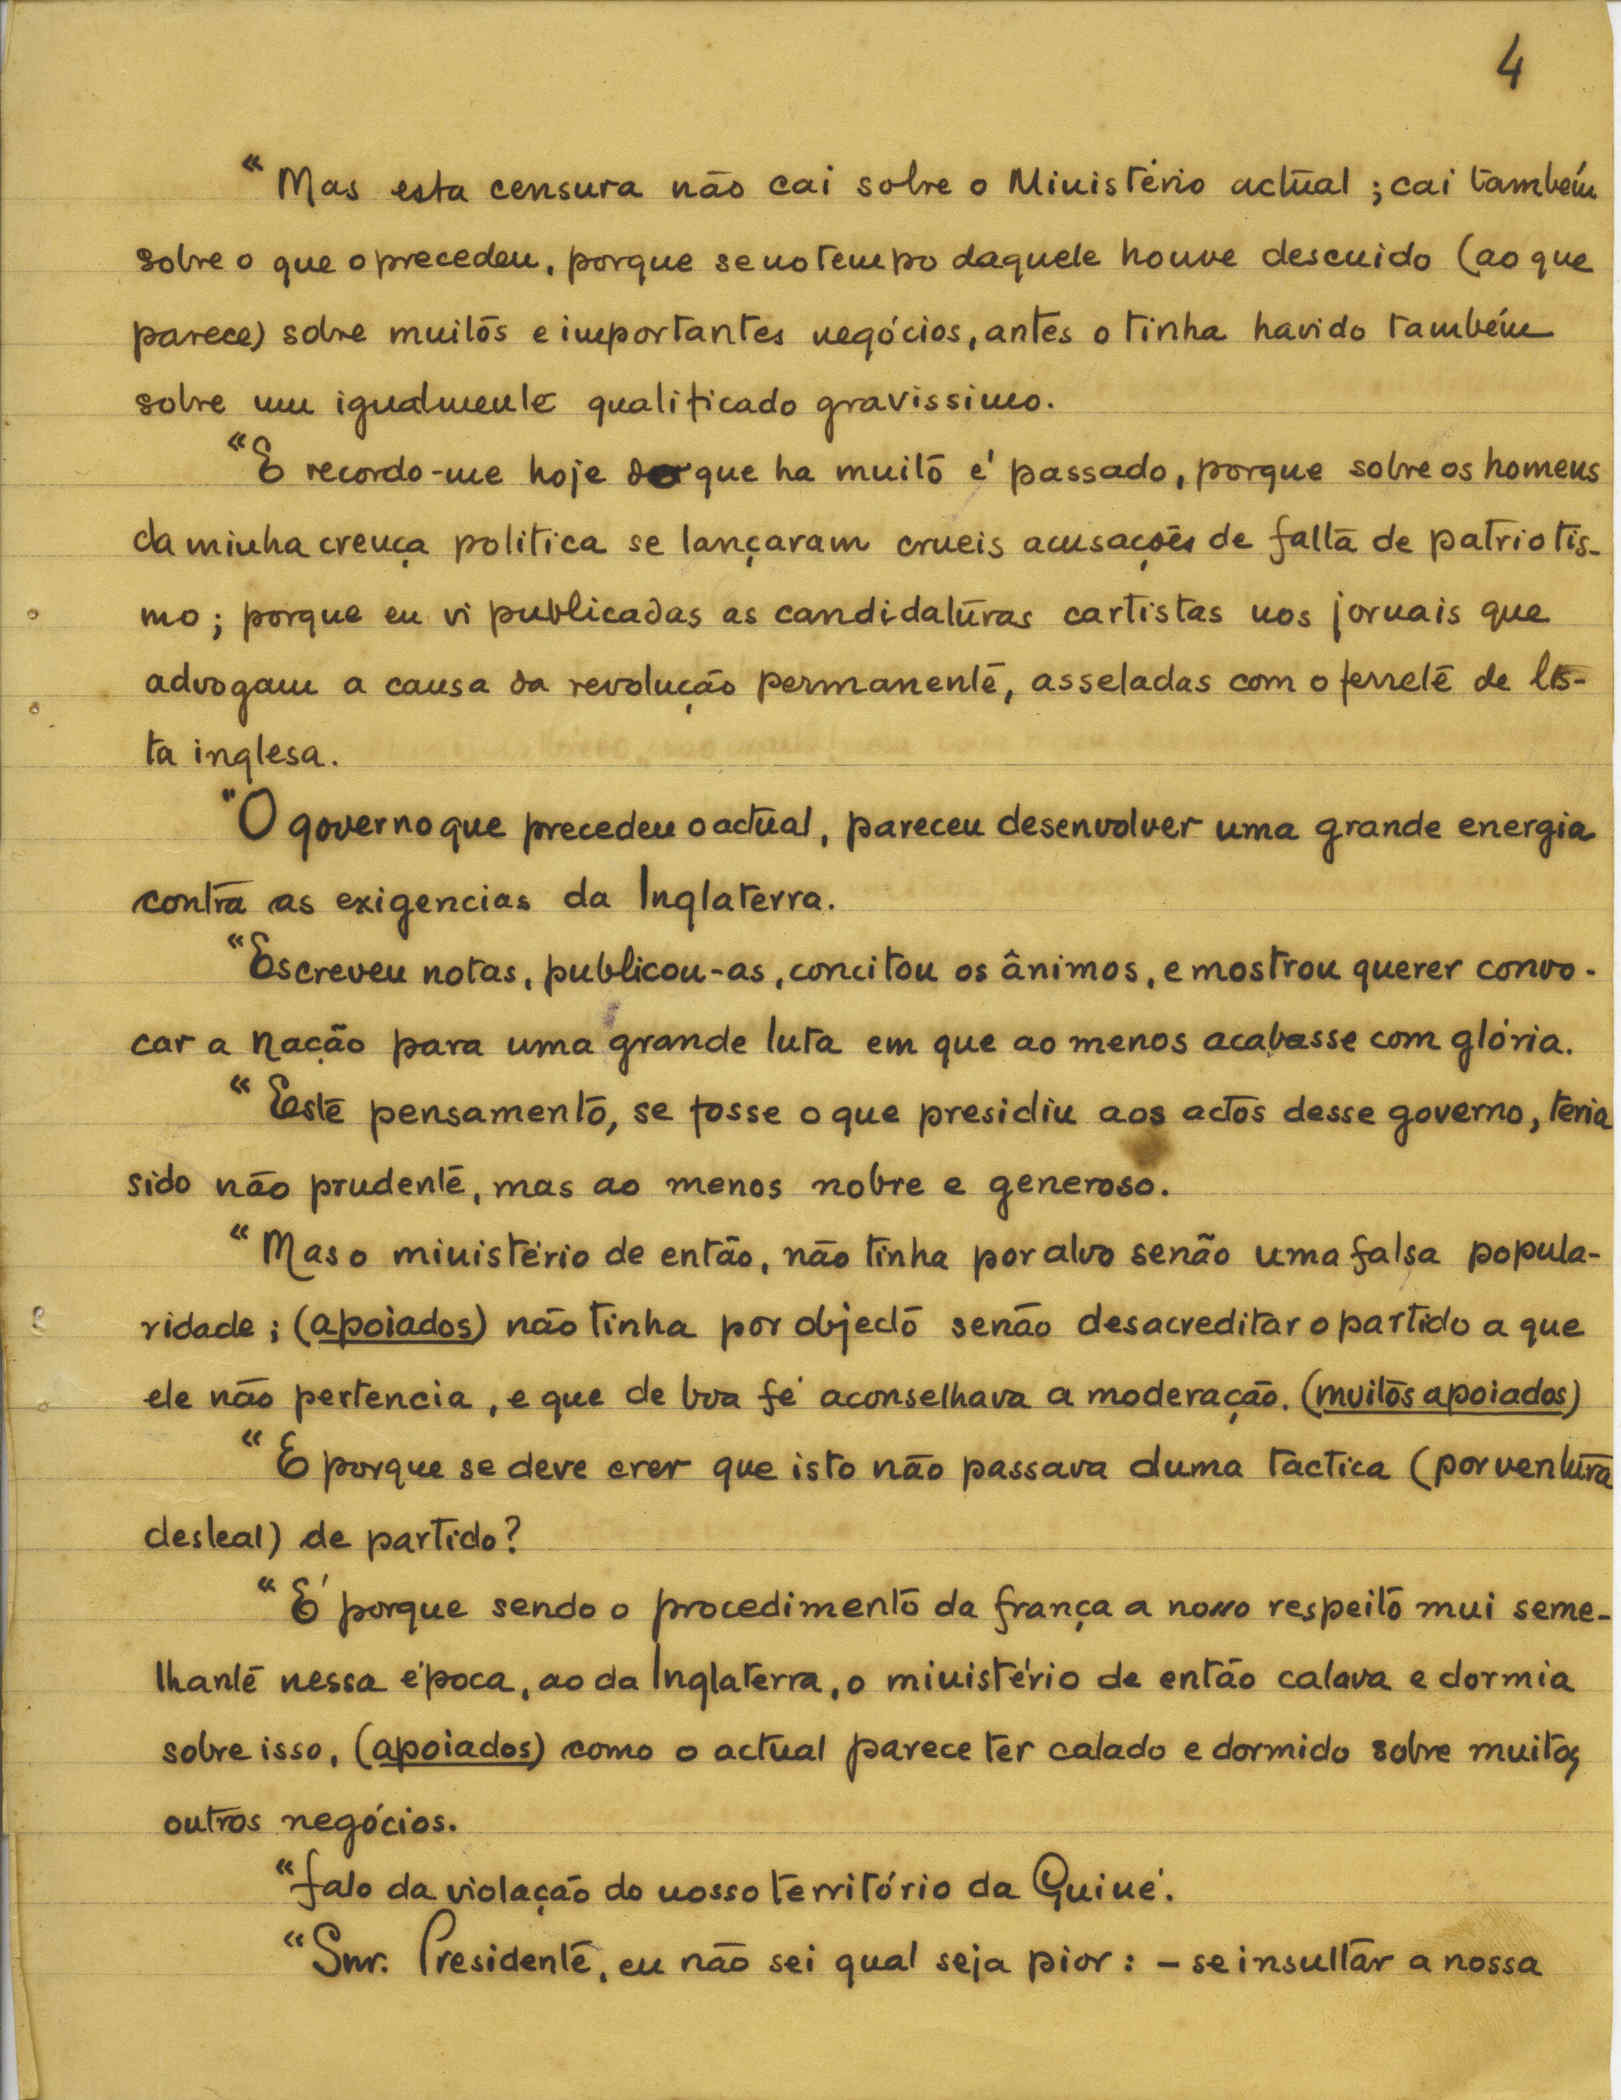 4
“Mas esta censura não cai sobre o Ministério actual; cai também
sobre o que o precedeu, porque se no tempo daquele houve descuido (ao que
parece) sobre muitos e importantes negócios, antes o tinha havido também
sobre um igualmente qualificado gravissimo.
“E recordo-me hoje do que ha muito é passado, porque sobre os homens
da minha crença politica se lançaram crueis acusações de falta de patriotis-
mo; porque eu vi publicadas as candidaturas cartistas nos jornais que
advogam a causa da revolução permanente, asseladas com o ferrete de lis-
ta inglesa.
“O governo que precedeu o actual, pareceu desenvolver uma grande energia
contra as exigencias da Inglaterra.
“Escreveu notas, publicou-as, concitou os ânimos, e mostrou querer convo-
car a Nação para uma grande luta em que ao menos acabasse com glória.
“Este pensamento, se fosse o que presidiu aos actos desse governo, teria
sido não prudente, mas ao menos nobre e generoso.
“Mas o ministério de então, não tinha por alvo senão uma falsa popula-
ridade; (apoiados) não tinha por objecto senão desacreditar o partido a que
ele não pertencia, e que de boa fé aconselhava a moderação. (muitos apoiados)
“E porque se deve crer que isto não passava duma tactica (porventura
desleal) de partido?
“É porque sendo o procedimento da frança a nosso respeito mui seme-
lhante nessa época, ao da Inglaterra, o ministério de então calava e dormia
sobre isso, (apoiados) como o actual parece ter calado e dormido sobre muitos
outros negócios.
“falo da violação do nosso território da Guiné.
“Snr. Presidente, eu não sei qual seja pior: – se insultar a nossa